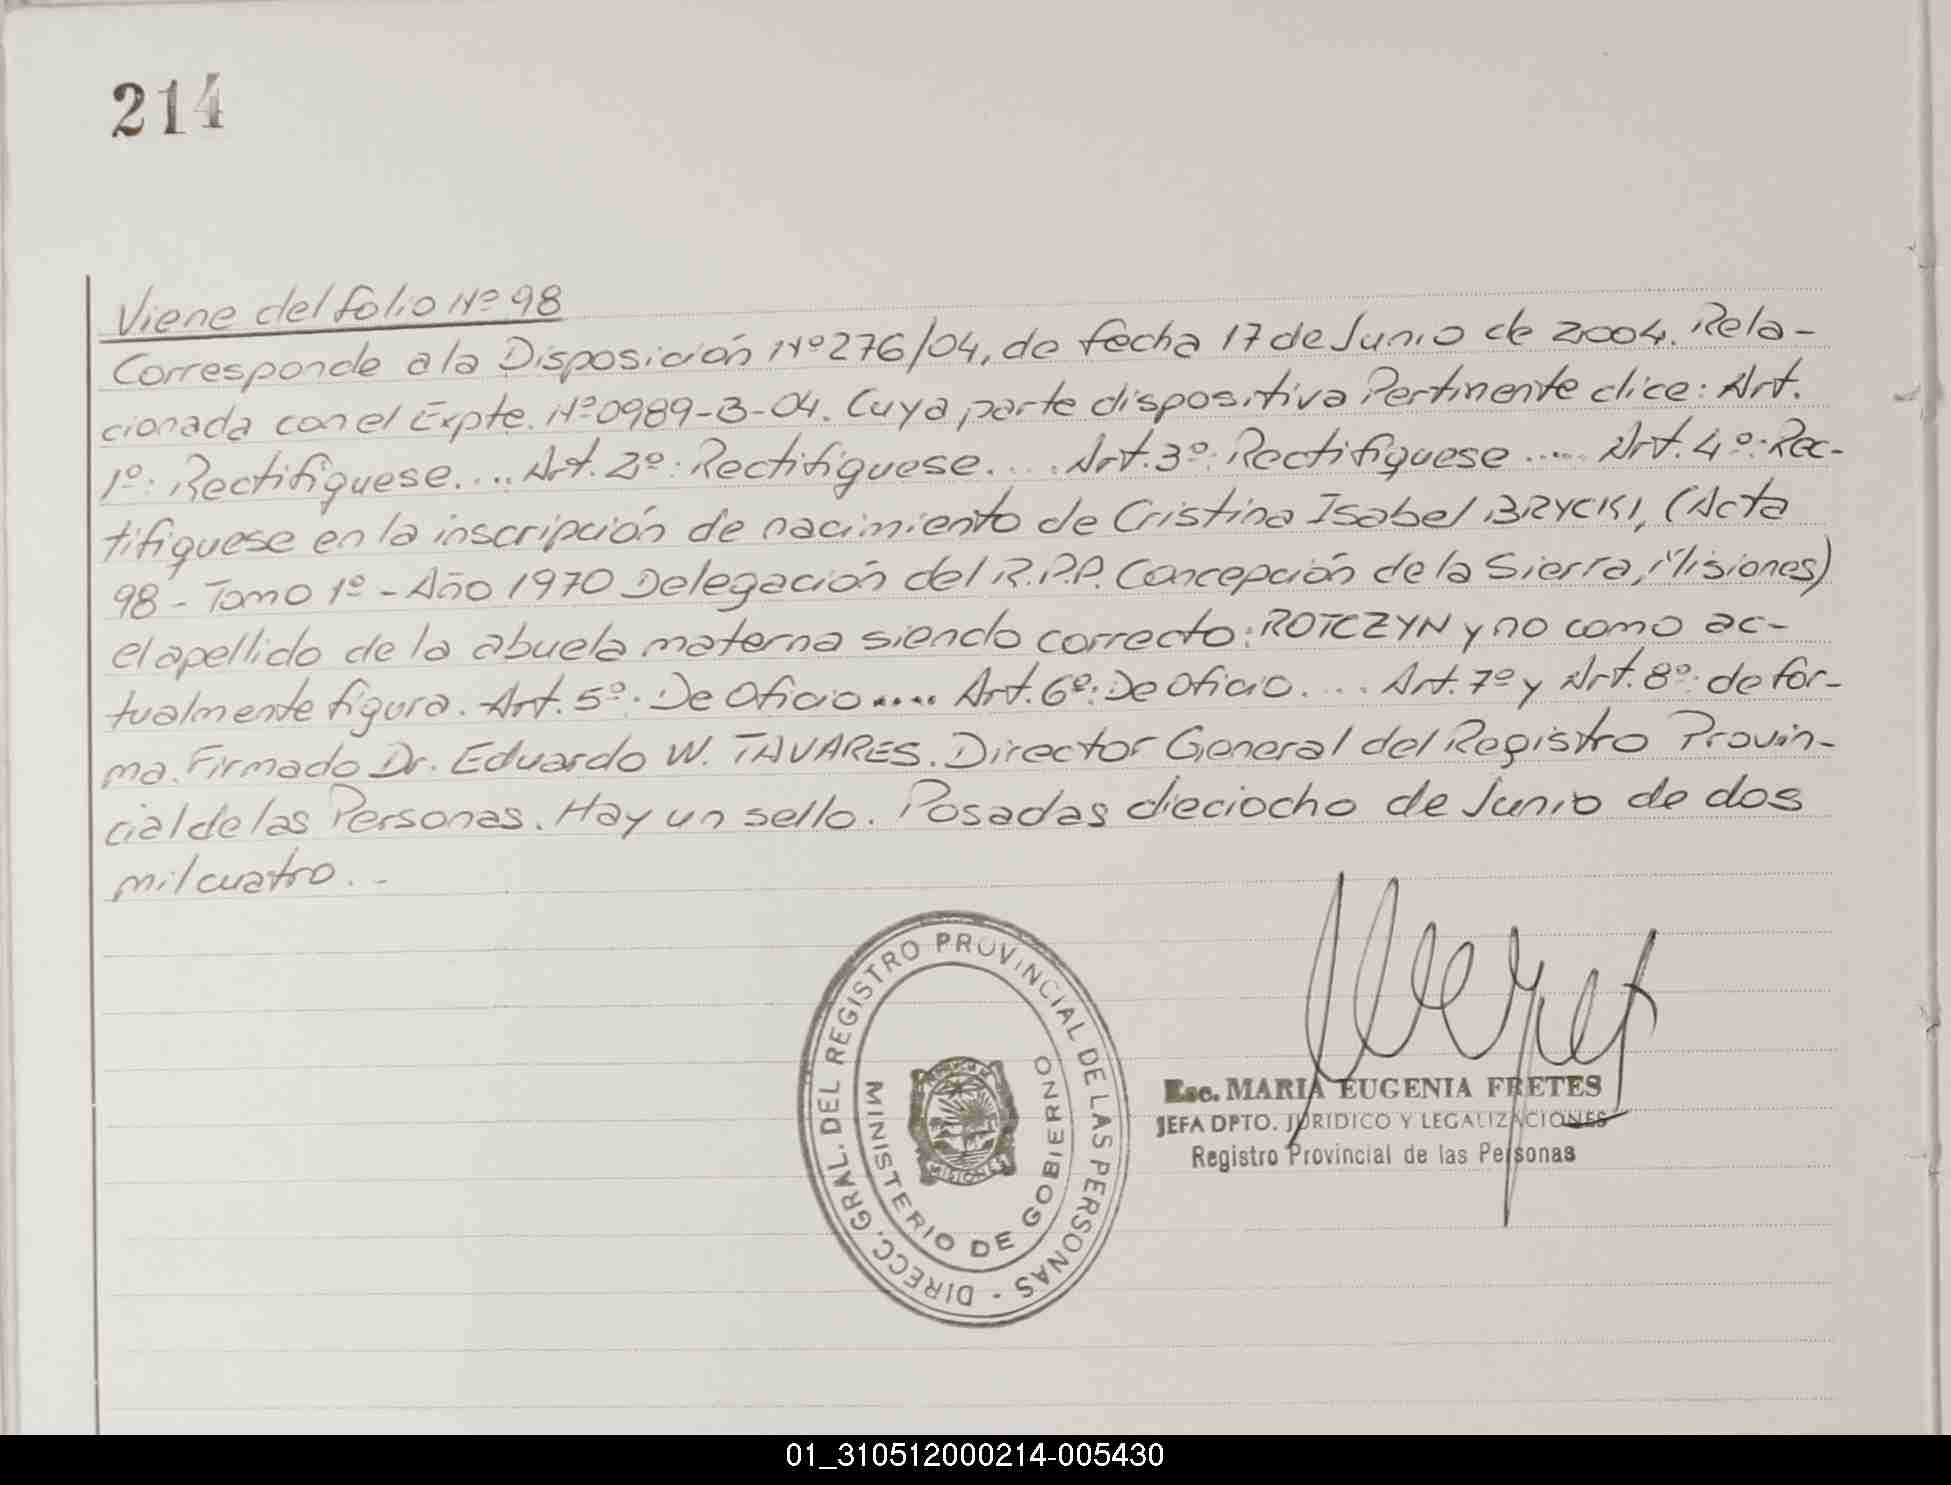 214
Viene del folio Nº 98
Corresponde a la Disposición Nº 276/04, de fecha 17 de Junio de 2004. Rela-
cionada con el Expte. Nº 0989-B-04. Cuya parte dispositiva Pertinente dice: Art.
1º: Rectifiquese.... Art. 2º: Rectifiquese.... Art. 3º: Rectifiquese ..... Art. 4º: Rec-
tifiquese en la inscripción de nacimiento de Cristina Isabel BRYCKI, (Acta
98 - Tomo 1º - Año 1970 Delegación del R.P.P. Concepción de la Sierra, Misiones)
el apellido de la abuela materna siendo correcto: ROTCZYN y no como ac-
tualmente figura. Art. 5º: De Oficio.... Art. 6º: De Oficio.... Art. 7º y Art. 8º: de for-
ma. Firmado Dr. Eduardo W. TAVARES. Director General del Registro Provin-
cial de las Personas. Hay un sello. Posadas dieciocho de Junio de dos
mil cuatro. -
DIRECC. GRAL. DEL REGISTRO PROVINCIAL DE LAS PERSONAS -
MINISTERIO DE GOBIERNO
MISIONES
Esc. MARIA EUGENIA FRETES
JEFA DPTO. JURIDICO Y LEGALIZACIONES
Registro Provincial de las Personas
01_310512000214-005430